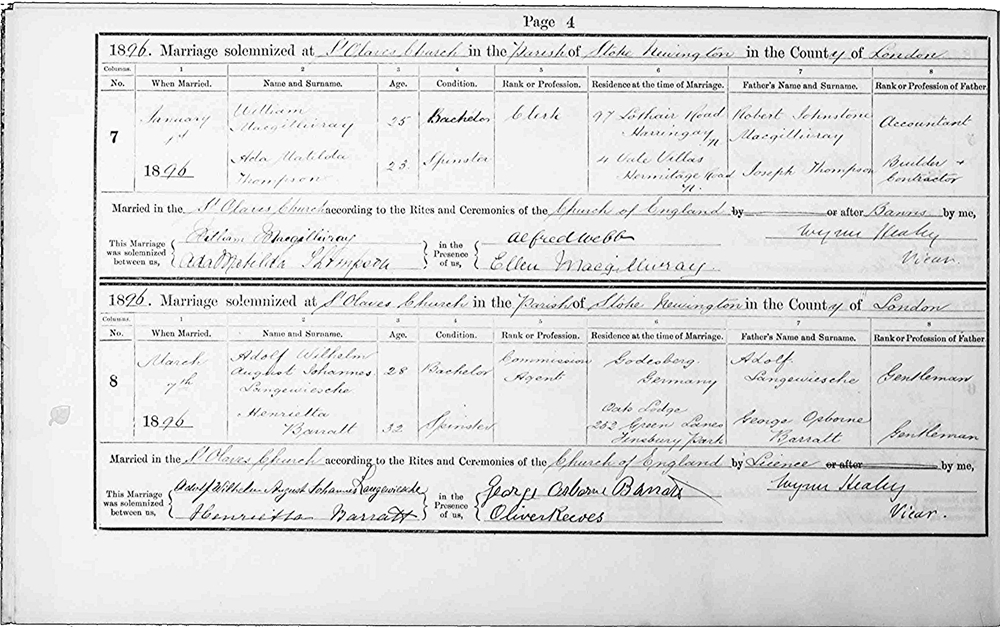 Page 4
1896. Marriage solemnized at St Olaves Church in the Parish of Stoke Newington in the County of London
Columns. 1 2 3 4 5 6 7 8
No. When Married. Name and Surname. Age. Condition. Rank or Profession. Residence at the time of Marriage. Father's Name and Surname. Rank or Profession of Father.
7 January 1st 1896 William Macgillivray 25 Bachelor Clerk 97 Lothair Road Harringay N Robert Johnstone Macgillivray Accountant
Ada Matilda Thompson 23 Spinster 4 Vale Villas Hermitage Road N. Joseph Thompson Builder + Contractor
Married in the St Olaves Church according to the Rites and Ceremonies of the Church of England by or after Banns by me,
This Marriage was solemnized between us, William Macgillivray Ada Matilda Thompson in the Presence of us, Alfred Webb Ellen Macgillivray Wynn Healey Vicar.
1896. Marriage solemnized at St Olaves Church in the Parish of Stoke Newington in the County of London
Columns. 1 2 3 4 5 6 7 8
No. When Married. Name and Surname. Age. Condition. Rank or Profession. Residence at the time of Marriage. Father's Name and Surname. Rank or Profession of Father.
8 March 7th 1896 Adolf Wilhelm August Johannes Langewiesche 28 Bachelor Commission Agent Godesberg Germany Adolf Langewiesche Gentleman
Henrietta Barratt 32 Spinster Oak Lodge 252 Green Lanes Finsbury Park George Osborne Barratt Gentleman
Married in the St Olaves Church according to the Rites and Ceremonies of the Church of England by Licence or after by me,
This Marriage was solemnized between us, Adolf Wilhelm August Johannes Langewiesche Henrietta Barratt in the Presence of us, George Osborne Barratt Oliver Reeves Wynn Healey Vicar.